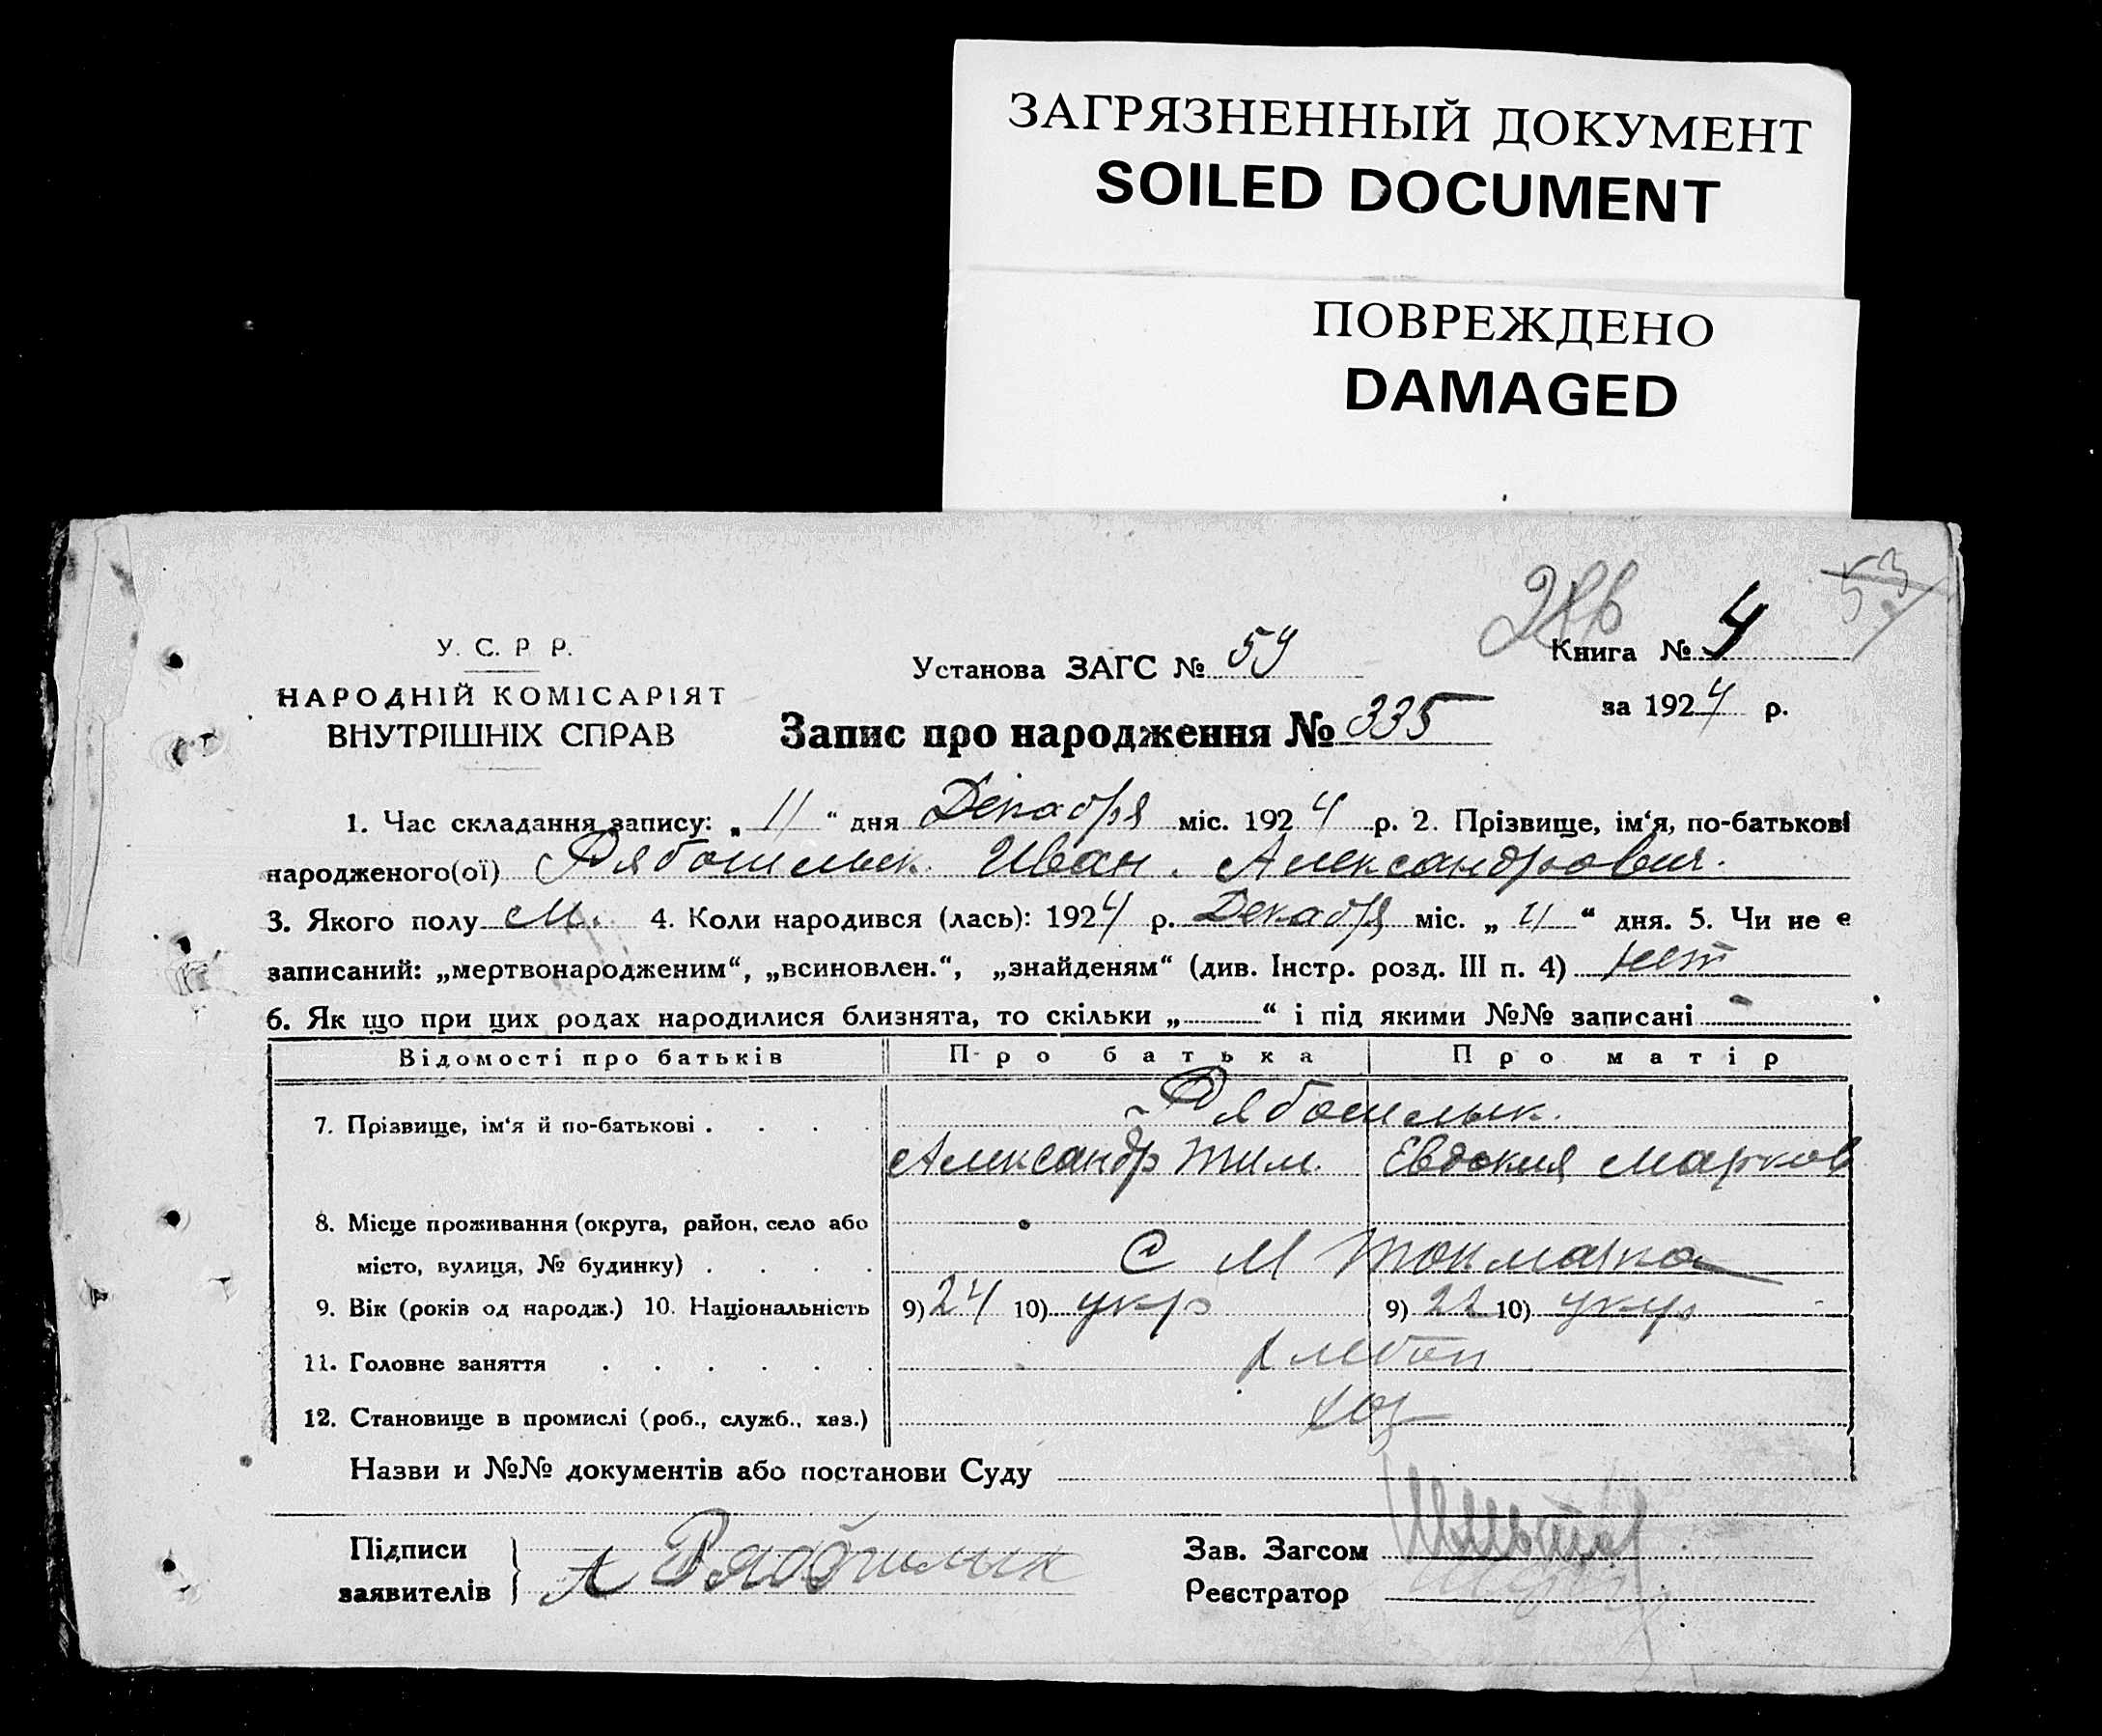 ЗАГРЯЗНЕННЫЙ ДОКУМЕНТ
SOILED DOCUMENT
ПОВРЕЖДЕНО
DAMAGED
53
У. С. Р. Р.
НАРОДНІЙ КОМІСАРІЯТ
ВНУТРІШНІХ СПРАВ
Установа ЗАГС № 59
Книга № 4
за 1924 р.
Запис про народження № 335
1. Час складання запису: „ 11 “ дня Декабря міс. 1924 р. 2. Прізвище, ім‘я, по-батькові
народженого(ої) Рябошлык Иван. Александрович.
3. Якого полу м. 4. Коли народився (лась): 1924 р. Декабря міс. „ 4 “ дня. 5. Чи не є
записаний: „мертвонародженим“, „всиновлен.“, „знайденям“ (див. Інстр. розд. III п. 4) нет
6. Як що при цих родах народилися близнята, то скільки „ “ і під якими №№ записані -
Відомості про батьків Про батька Про матір
Рябошлык.
7. Прізвище, ім‘я й по-батькові . . . .
Александр Тим. Евдокия Марков
8. Місце проживання (округа, район, село або
місто, вулиця, № будинку) . . . . С М Токмачка
9. Вік (років од народж.) 10. Національність 9) 24 10) укр 9) 22 10) укр
11. Головне заняття . . . . . . хлебоп
12. Становище в промислі (роб., служб., хаз.) хоз
Назви и №№ документів або постанови Суду
Підписи
заявителів
А Рябошлик
Зав. Загсом
Реєстратор